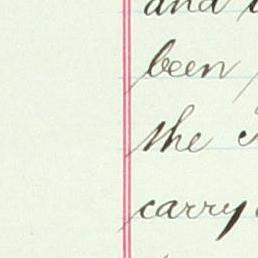 and
been
the
carry